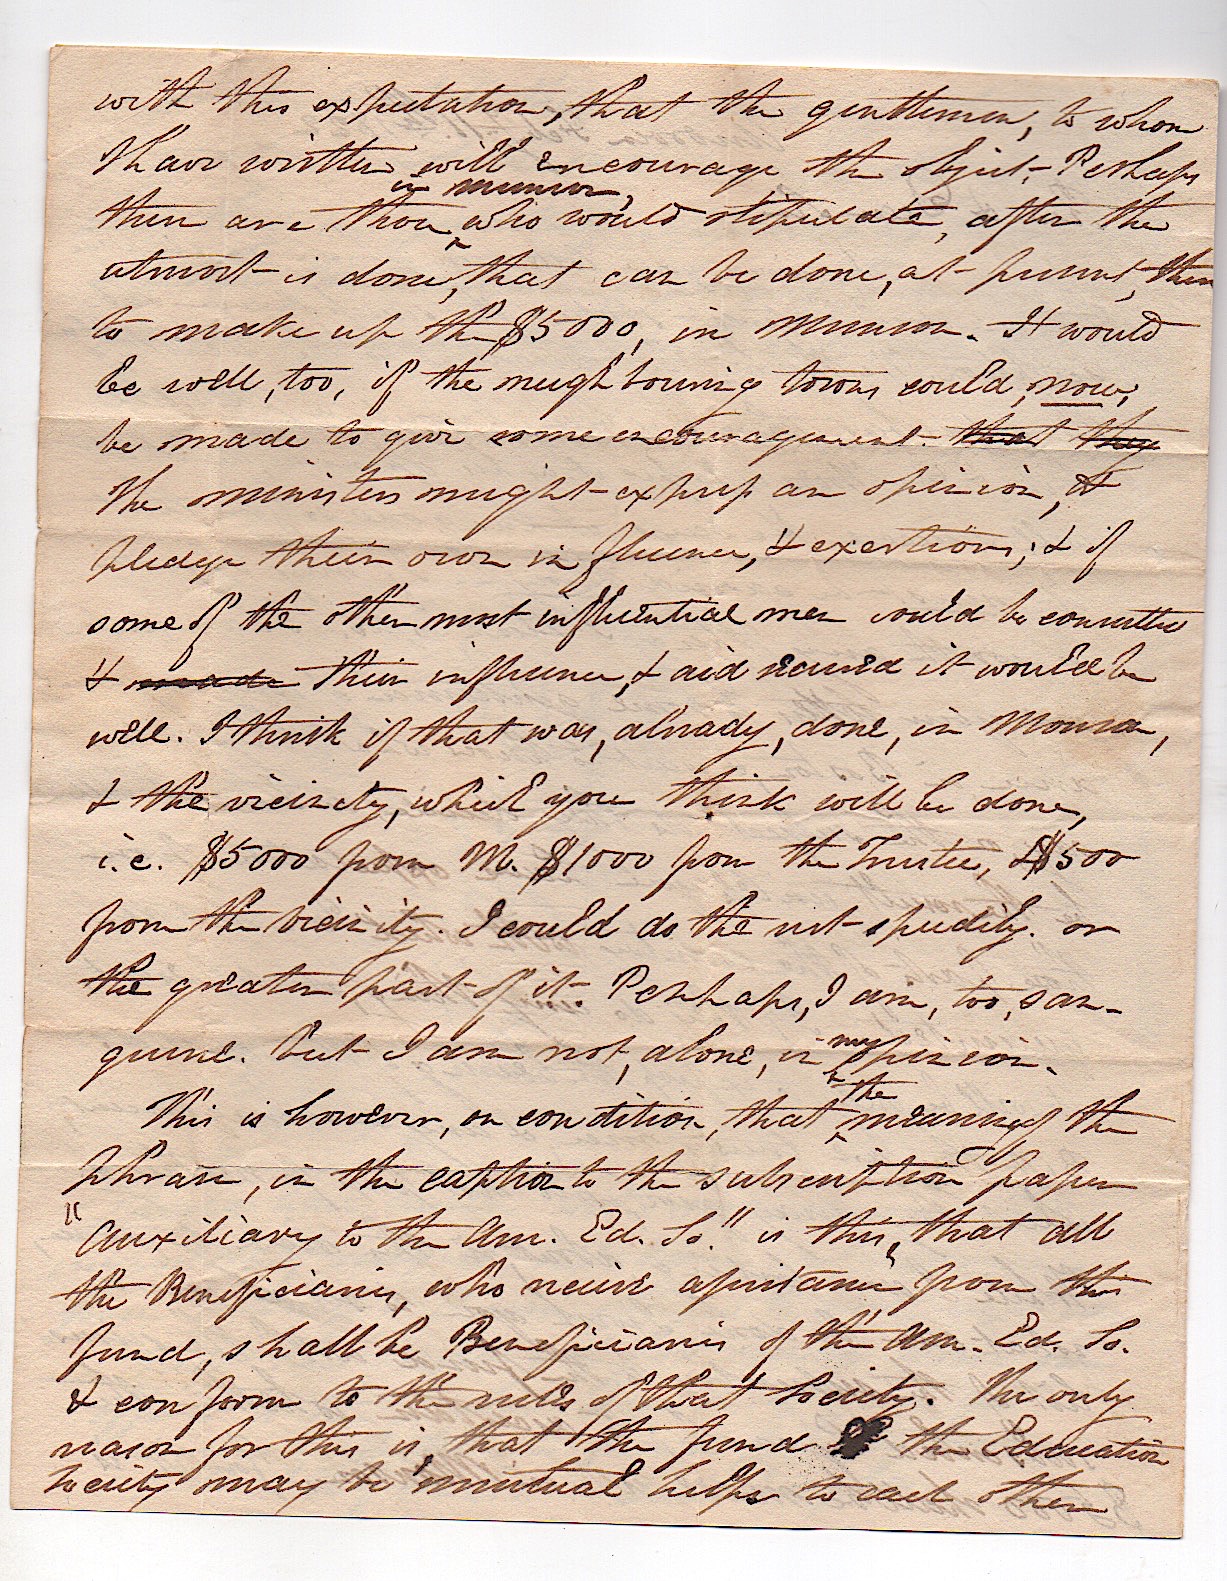 with this expectation, that the gentlemen, to whom
I have written will encourage the object. Perhaps
in Munson,
there are those who would stipulate, after the
utmost is done, that can be done, at present, then
to make up the $5000, in Munson. It would
be well, too, if the neighbouring towns could, now,
be made to give some encouragement. that they
The ministers might express an opinion, &
pledge their own influence, & exertions; & if
some of the other most influential men could be committed
& made their influence, & aid secured it would be
well. I think if that was, already, done, in Monson,
& the vicinity, which you think will be done,
i.e. $5000 from M. $1000 from the Trustee, & $500
from the vicinity. I could do the rest speedily. or
the greater part of it. Perhaps, I am, too, san-
guine. but I am not, alone, in my opinion.
This is however, on condition, that the meaning of the
phrase, in the caption to the subscription paper
"Auxiliary to the Am. Ed. So." is this, that all
the Beneficiaries, who receive assistance from this
fund, shall be Beneficiaries of the Am. Ed. So.
& conform to the rules of that Society. The only
reason for this is, that the fund & the Education
Society may be mutual helps to each other